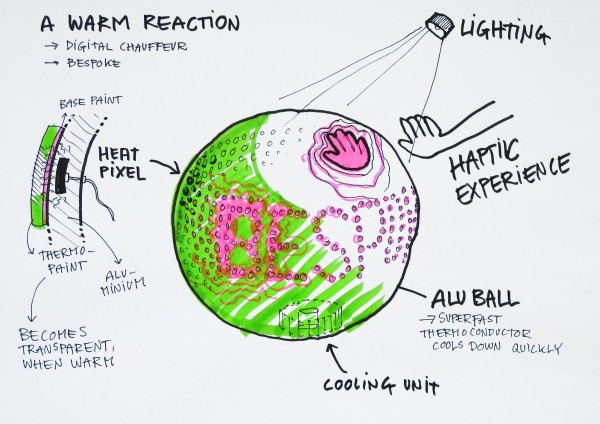 A WARM REACTION
→ DIGITAL CHAUFFEUR
→ BESPOKE
LIGHTING
BASE PAINT
HEAT
PIXEL
HAPTIC
EXPERIENCE
THERMO-
PAINT
ALU-
MINIUM
BECOMES
TRANSPARENT,
WHEN WARM
ALU BALL
→ SUPERFAST
THERMOCONDUCTOR
COOLS DOWN QUICKLY
COOLING UNIT